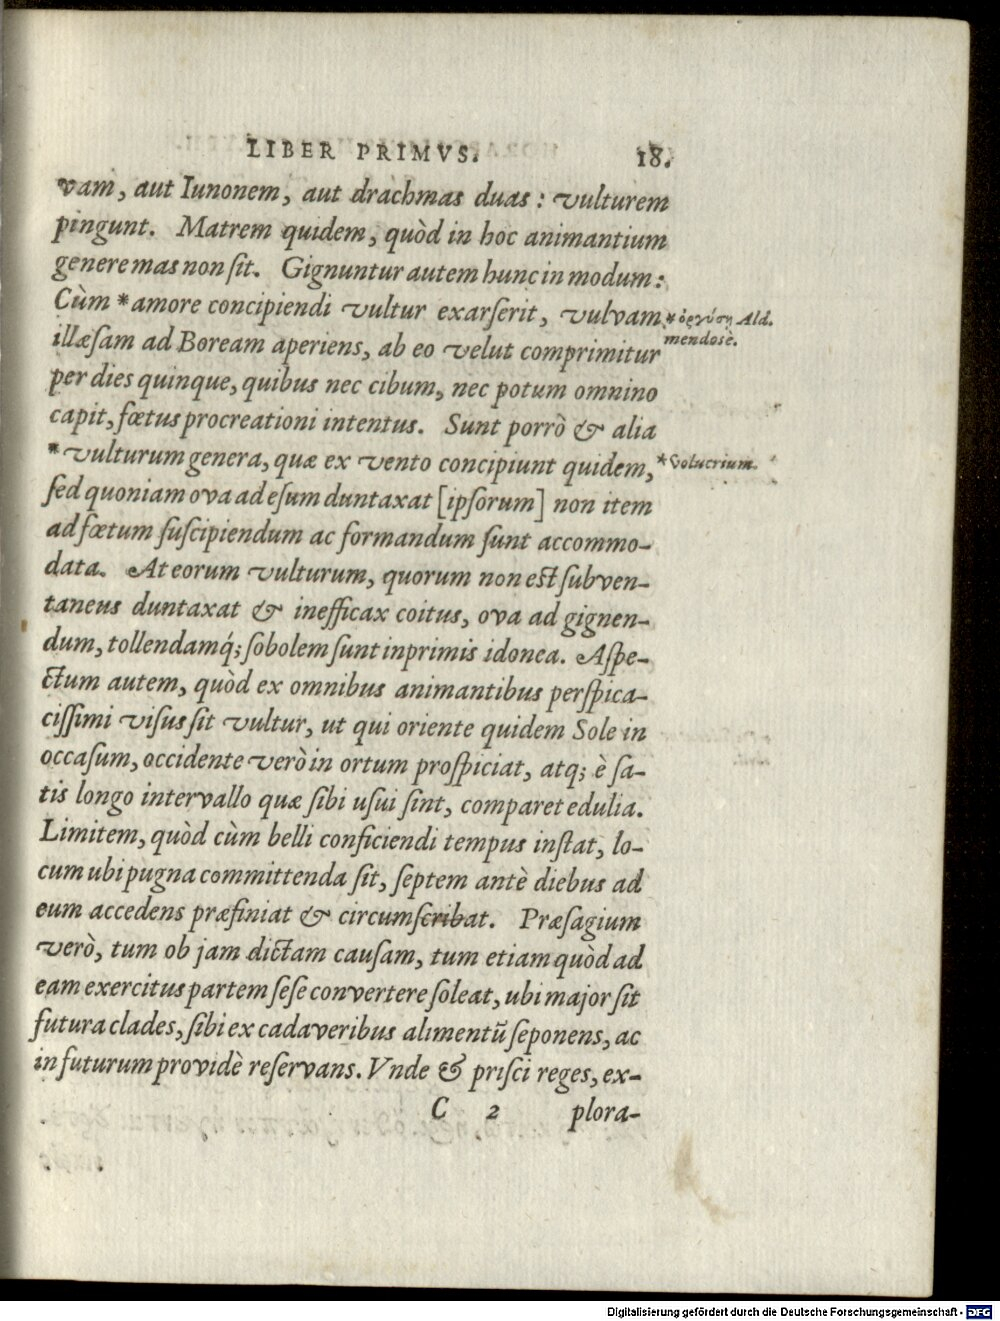 LIBER PRIMVS. 18.
vam, aut Iunonem, aut drachmas duas : vulturem
pingunt. Matrem quidem, quòd in hoc animantium
genere mas non ſit. Gignuntur autem hunc in modum:
Cùm * amore concipiendi vultur exarſerit, vulvam
* ὀργύσῃ Ald.
mendosè.
illæſam ad Boream aperiens, ab eo velut comprimitur
per dies quinque, quibus nec cibum, nec potum omnino
capit, fœtus procreationi intentus. Sunt porrò & alia
* vulturum genera, quæ ex vento concipiunt quidem,
* Volucrium.
ſed quoniam ova ad eſum duntaxat [ipſorum] non item
ad fœtum ſuſcipiendum ac formandum ſunt accommo-
data. At eorum vulturum, quorum non est ſubven-
taneus duntaxat & inefficax coitus, ova ad gignen-
dum, tollendamq́; ſobolem ſunt inprimis idonea. Aſpe-
ctum autem, quòd ex omnibus animantibus perſpica-
ciſſimi viſus ſit vultur, ut qui oriente quidem Sole in
occaſum, occidente verò in ortum proſpiciat, atq; è ſa-
tis longo intervallo quæ ſibi uſui ſint, comparet edulia.
Limitem, quòd cùm belli conficiendi tempus inſtat, lo-
cum ubi pugna committenda ſit, ſeptem antè diebus ad
eum accedens præfiniat & circumſcribat. Præſagium
verò, tum ob jam dictam cauſam, tum etiam quòd ad
eam exercitus partem ſeſe convertere ſoleat, ubi major ſit
futura clades, ſibi ex cadaveribus alimentũ ſeponens, ac
in futurum providè reſervans. Vnde & priſci reges, ex-
C 2 plora-
Digitalisierung gefördert durch die Deutsche Forschungsgemeinschaft - DFG